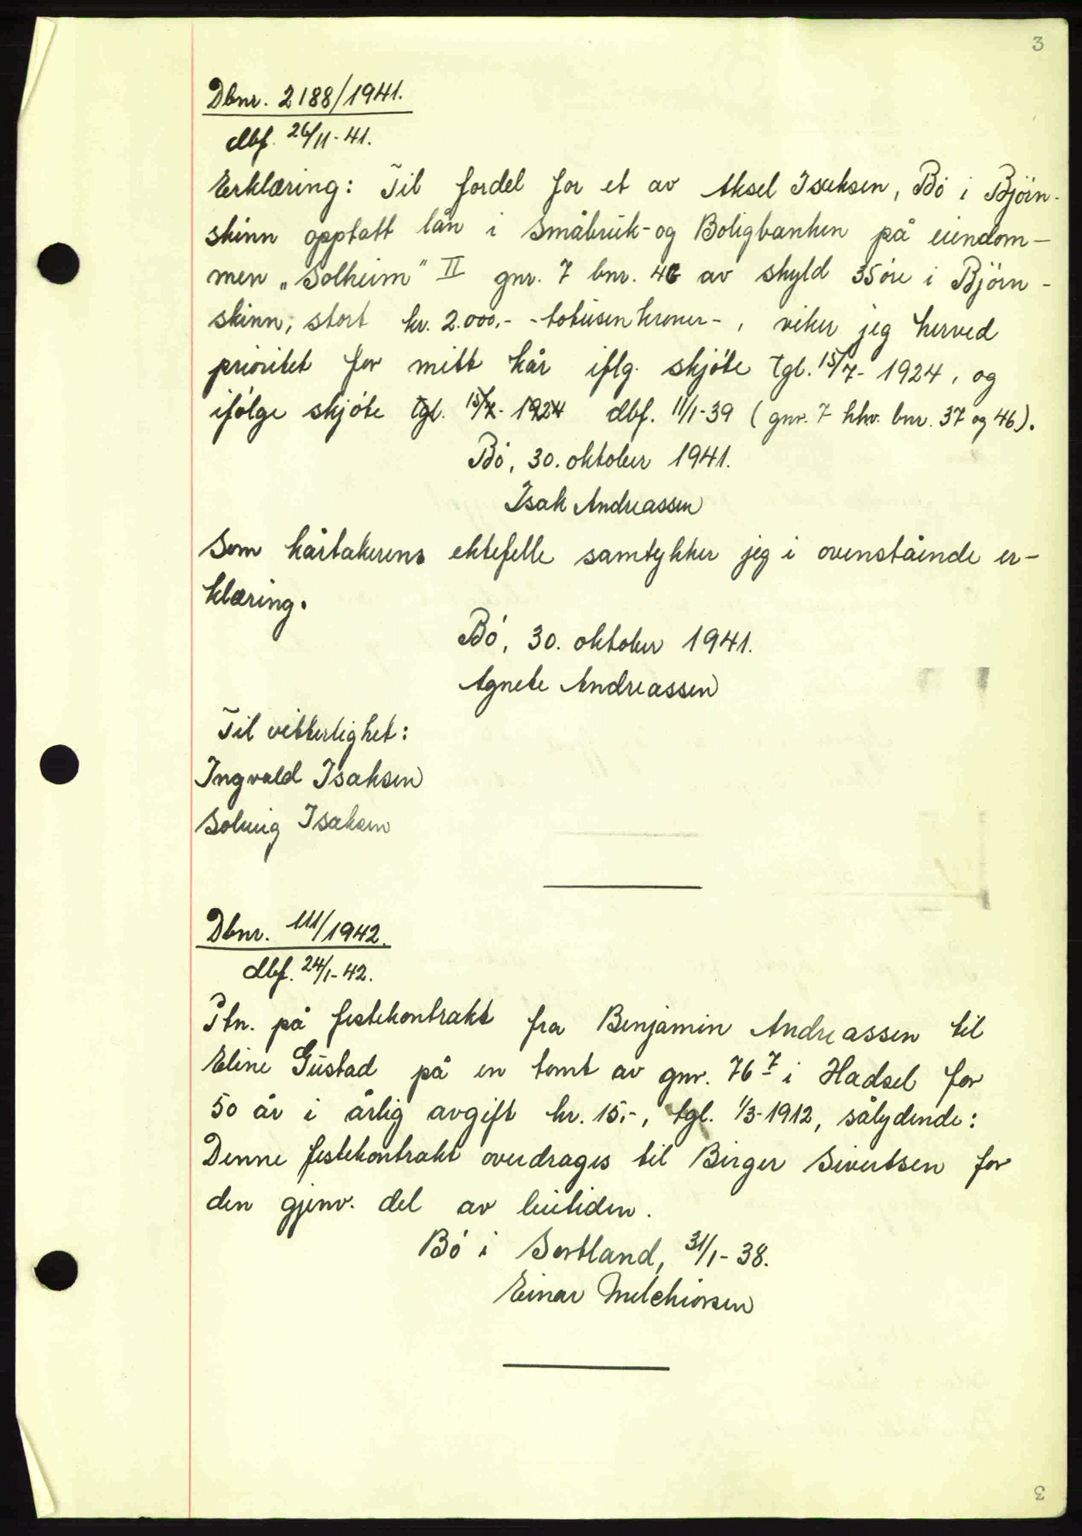 3
Dbnr. 2188/1941.
dbf. 26/11-41.
Erklæring: Til fordel for et av Aksel Isaksen, Bø i Bjørn-
skinn opptatt lån i Småbruk- og Boligbanken på eiendom-
men „Solheim" II gnr. 7 bnr. 46 av skyld 35 øre i Bjørn-
skinn, stort kr. 2.000,- -totusen kroner-, viker jeg herved
prioritet for mitt kår iflg. skjøte tgl. 15/7- 1924, og
ifølge skjøte tgl. 15/7- 1924 dbf. 11/1-39 (gnr. 7 hhv. bnr. 37 og 46).
Bø, 30. oktober 1941.
Isak Andreassen
Som kårtakerens ektefelle samtykker jeg i ovenstående er-
klæring.
Bø, 30. oktober 1941.
Agnete Andreassen
Til vitterlighet:
Ingvald Isaksen
Solveig Isaksen
Dbnr. 111/1942.
dbf. 24/1-42.
Ptn. på festekontrakt fra Benjamin Andreassen til
Eline Gustad på en tomt av gnr. 76 7 i Hadsel for
50 år i årlig avgift kr. 15,-, tgl. 1/3-1912, sålydende:
Denne festekontrakt overdrages til Birger Sivertsen for
den gjenv. del av leietiden.
Bø i Sortland, 31/1-38.
Einar Melchiorsen
3